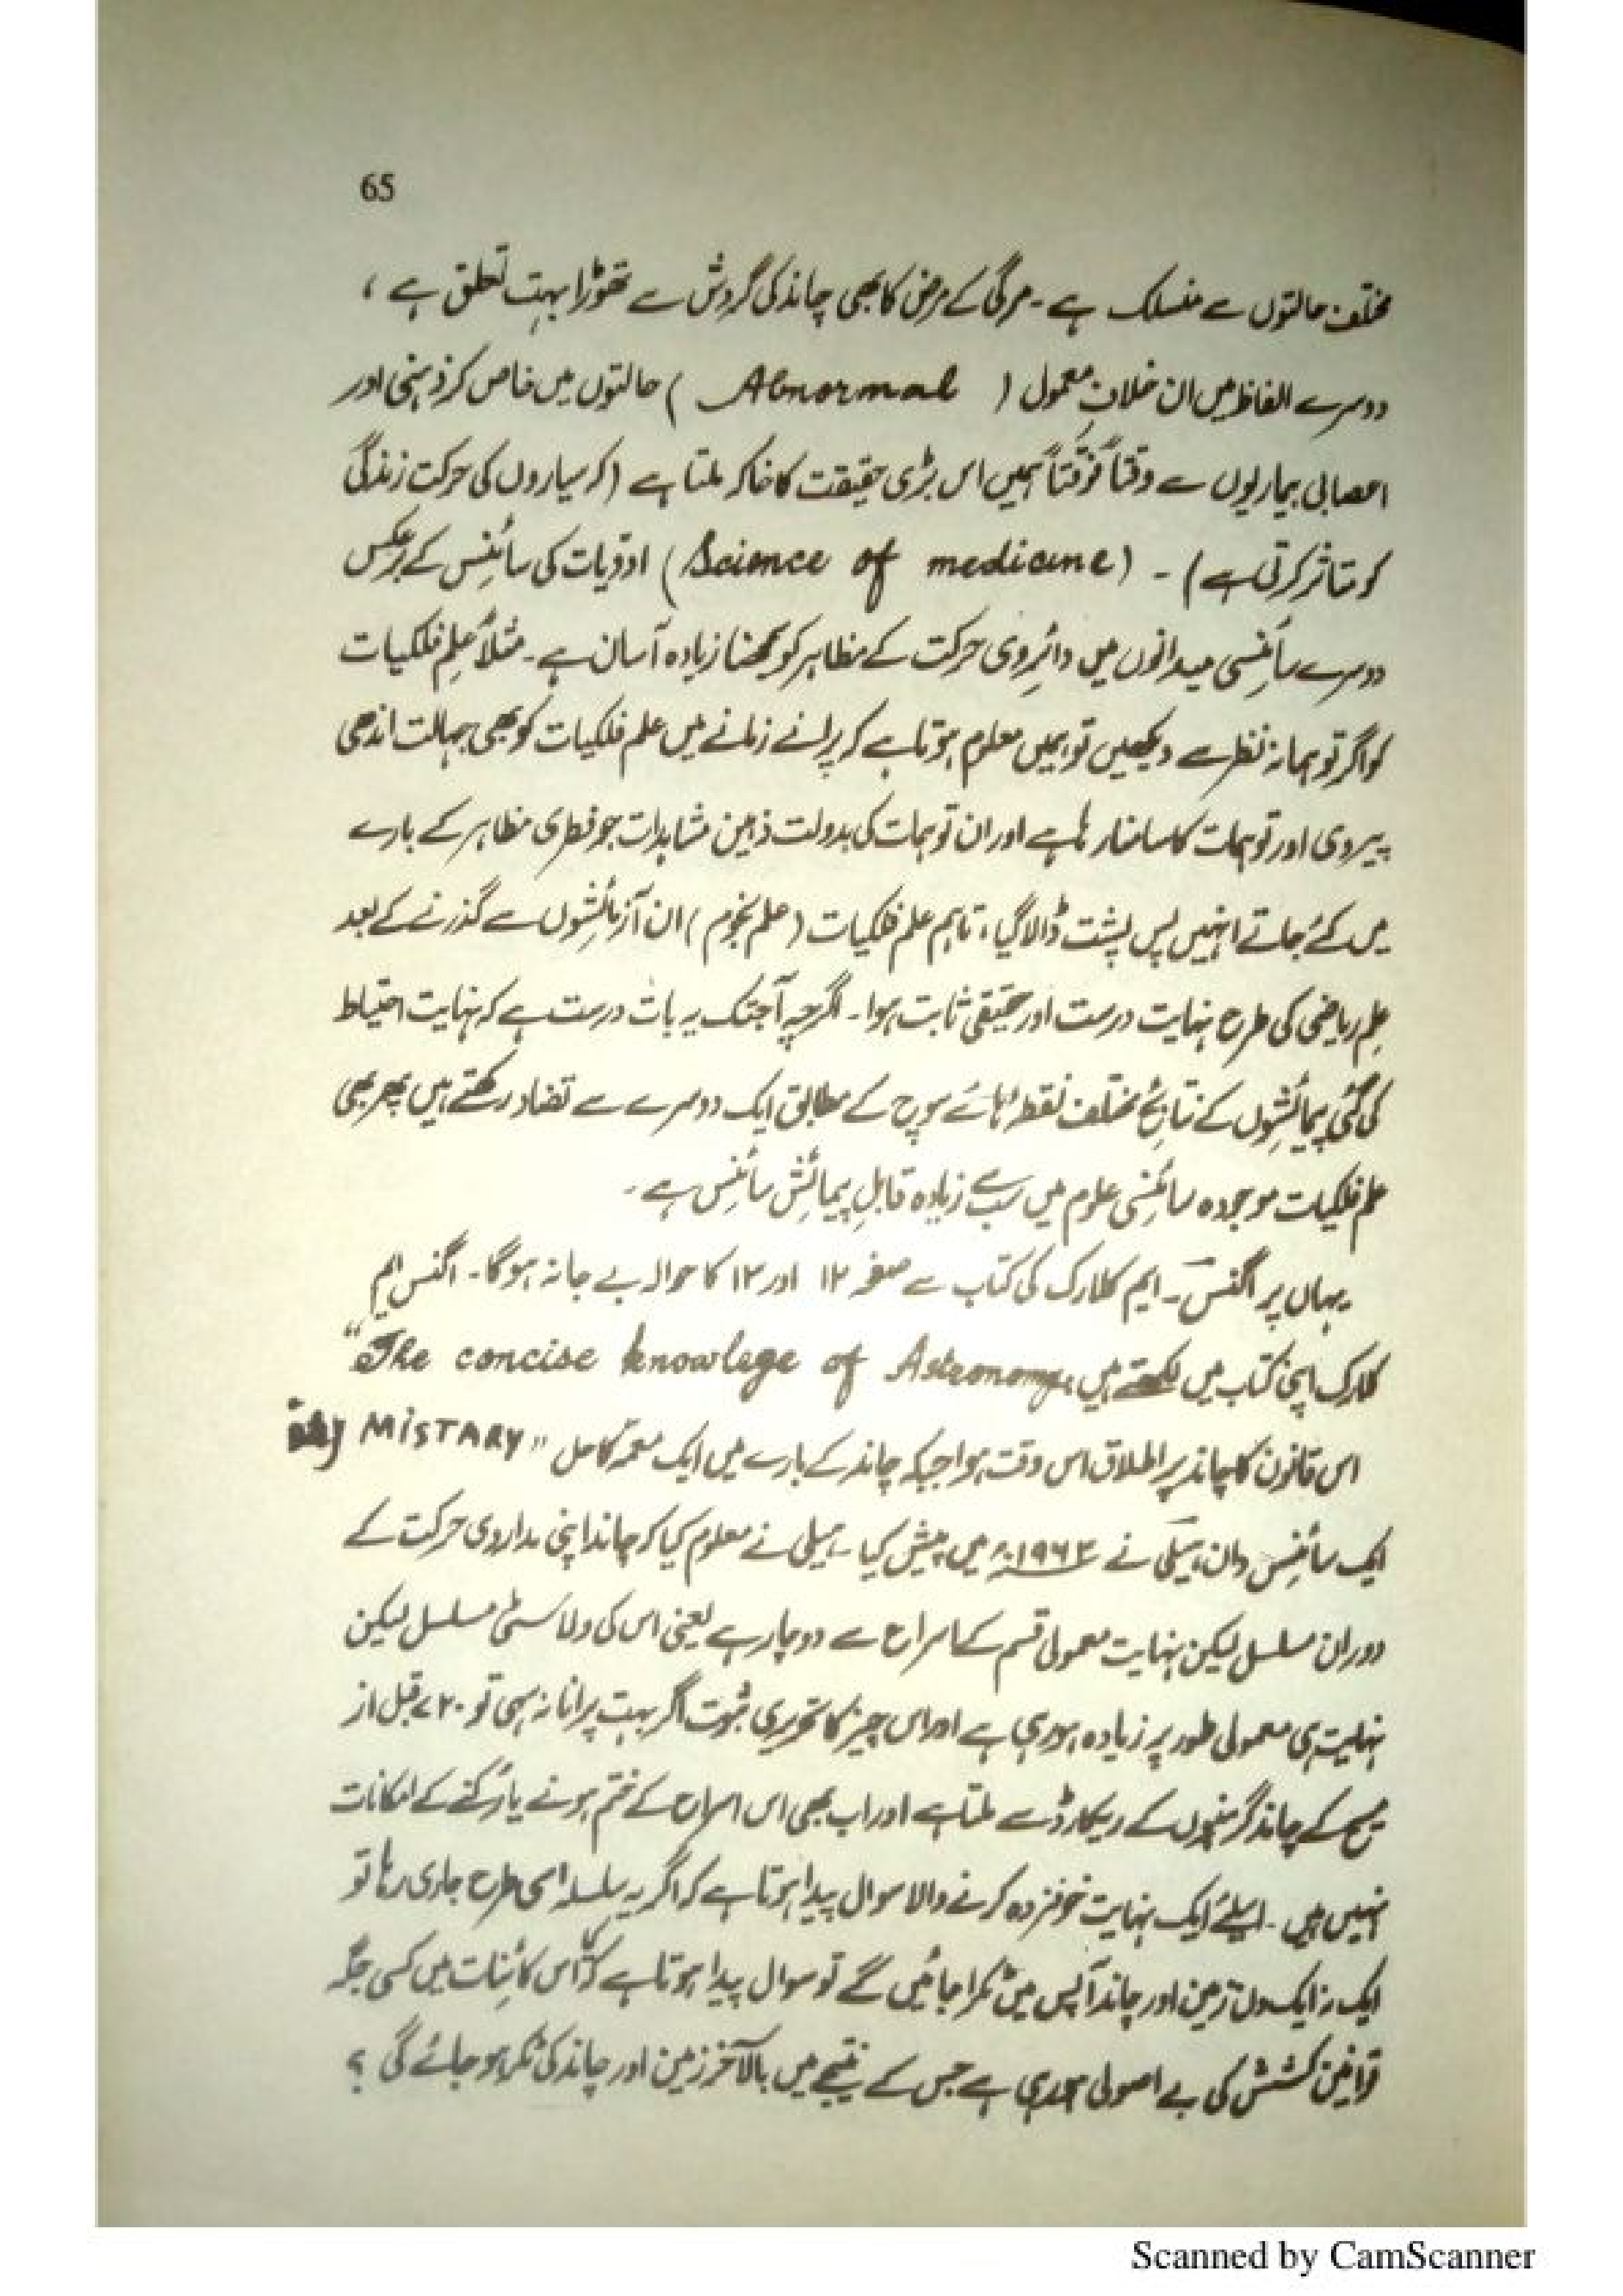 65
مختلف حالتوں سے منسلک ہے ۔ مرگی کے مرض کا بھی چاند کی گردش سے تھوڑا بہت تعلق ہے ،
دوسرے الفاظ میں ان خلافِ معمول ( Abnormal ) حالتوں میں خاص کر ذہنی اور
اعصابی بیماریوں سے وقتاً فوقتاً ہمیں اس بڑی حقیقت کا خاکہ ملتا ہے ( کہ سیاروں کی حرکت زندگی
کو متاثر کرتی ہے ) ۔ ( Science of medicine ) ادویات کی سائنس کے برعکس
دوسرے سائنسی میدانوں میں دائروی حرکت کے مظاہر کو سمجھنا زیادہ آسان ہے ۔ مثلاً علم فلکیات
کو اگر توہمانہ نظر سے دیکھیں تو ہمیں معلوم ہوتا ہے کہ پرانے زمانے میں علم فلکیات کو بھی جہالت اندھی
پیروی اور توہمات کا سامنا رہا ہے اور ان توہمات کی بدولت ذہین مشاہدات جو فطری مظاہر کے بارے
میں کئے جاتے انہیں پس پشت ڈالا گیا ، تاہم علم فلکیات ( علم نجوم ) ان آزمائشوں سے گذرنے کے بعد
علم ریاضی کی طرح نہایت درست اور حقیقی ثابت ہوا ۔ اگرچہ آجتک یہ بات درست ہے کہ نہایت احتیاط
کی گئی پیمائشوں کے نتائج مختلف نقطہ ہائے سوچ کے مطابق ایک دوسرے سے تضاد رکھتے ہیں پھر بھی
علم فلکیات موجودہ سائنسی علوم میں سب سے زیادہ قابلِ پیمائش سائنس ہے ۔
یہاں پر اگنس ۔ ایم کلارک کی کتاب سے صفحہ ۱۲ اور ۱۳ کا حوالہ بے جا نہ ہوگا ۔ اگنس ایم
کلارک اپنی کتاب میں لکھتے ہیں "The concise knowlege of Astronomy"
اس قانون کا چاند پر اطلاق اس وقت ہوا جبکہ چاند کے بارے میں ایک معمہ کا حل " MISTARY
ایک سائنس دان ہیلی نے ۱۹۶۳ء میں پیش کیا ۔ ہیلی نے معلوم کیا کہ چاند اپنی مداروی حرکت کے
دوران مسلسل لیکن نہایت معمولی قسم کے اسراع سے دوچار ہے یعنی اس کی ولاسٹی مسلسل لیکن
نہایت ہی معمولی طور پر زیادہ ہو رہی ہے اور اس چیز کا تحریری ثبوت اگر بہت پرانا نہ سہی تو ۷۲۰ قبل از
مسیح کے چاند گرہنوں کے ریکارڈ سے ملتا ہے اور اب بھی اس اسراع کے ختم ہونے یا رُکنے کے امکانات
نہیں ہیں ۔ اسلئے ایک نہایت خوفزدہ کرنے والا سوال پیدا ہوتا ہے کہ اگر یہ سلسلہ اسی طرح جاری رہا تو
ایک نہ ایک دن زمین اور چاند آپس میں ٹکرا جائیں گے تو سوال پیدا ہوتا ہے کہ کیا اس کائنات میں کسی جگہ
قوانین کشش کی بے اصولی ہو رہی ہے جس کے نتیجے میں بالآخر زمین اور چاند کی ٹکر ہو جائے گی ؟
Scanned by CamScanner